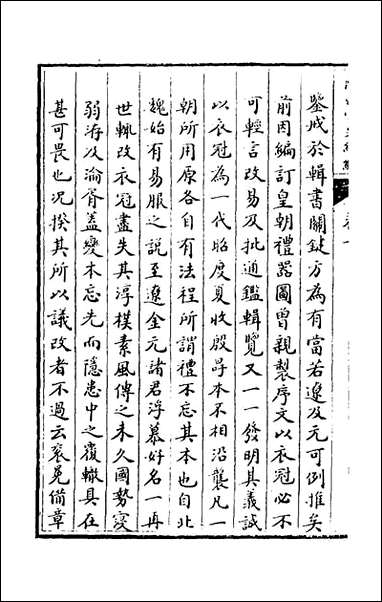 鑒戒於輯書關鍵方為有當若遼及元可例推矣
前因編訂皇朝禮器圖曾親製序文以衣冠必不
可輕言改易及批通鑑輯覽又一一發明其義誠
以衣冠為一代昭度夏收殷冔本不相沿襲凡一
朝所用原各自有法程所謂禮不忘其本也自北
魏始有易服之說至遼金元諸君浮慕好名一再
世輒改衣冠盡失其淳樸素風傳之未久國勢寖
弱洊及淪胥蓋變本忘先而隱患中之覆轍具在
甚可畏也況揆其所以議改者不過云衮冕備章